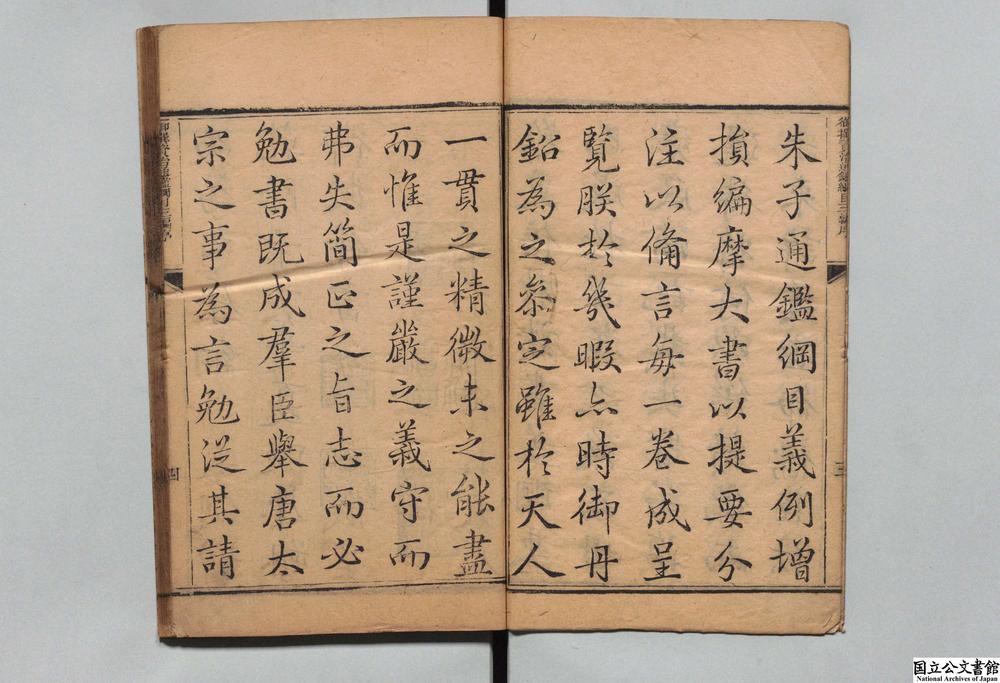 朱子通鑑綱目義例增
損編摩大書以提要分
注以偹言每一卷成呈
覽朕於幾暇亦時御丹
鉛為之叅定雖於天人
一貫之精微未之能盡
而惟是謹嚴之義守而
弗失簡正之旨志而必
勉書既成羣臣舉唐太
宗之事為言勉從其請
三
四
国立公文書館
National Archives of Japan